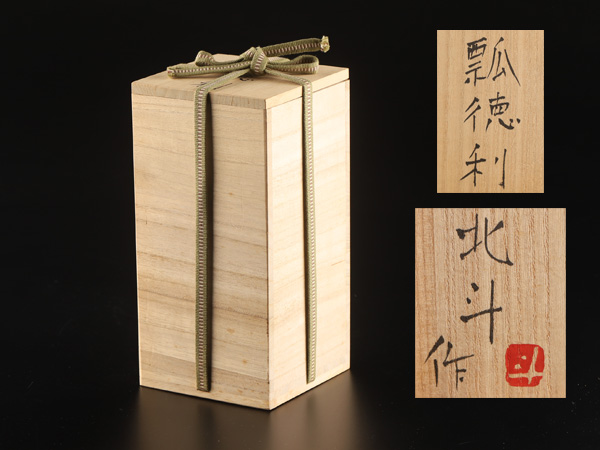 瓢徳利
北斗
作
斗